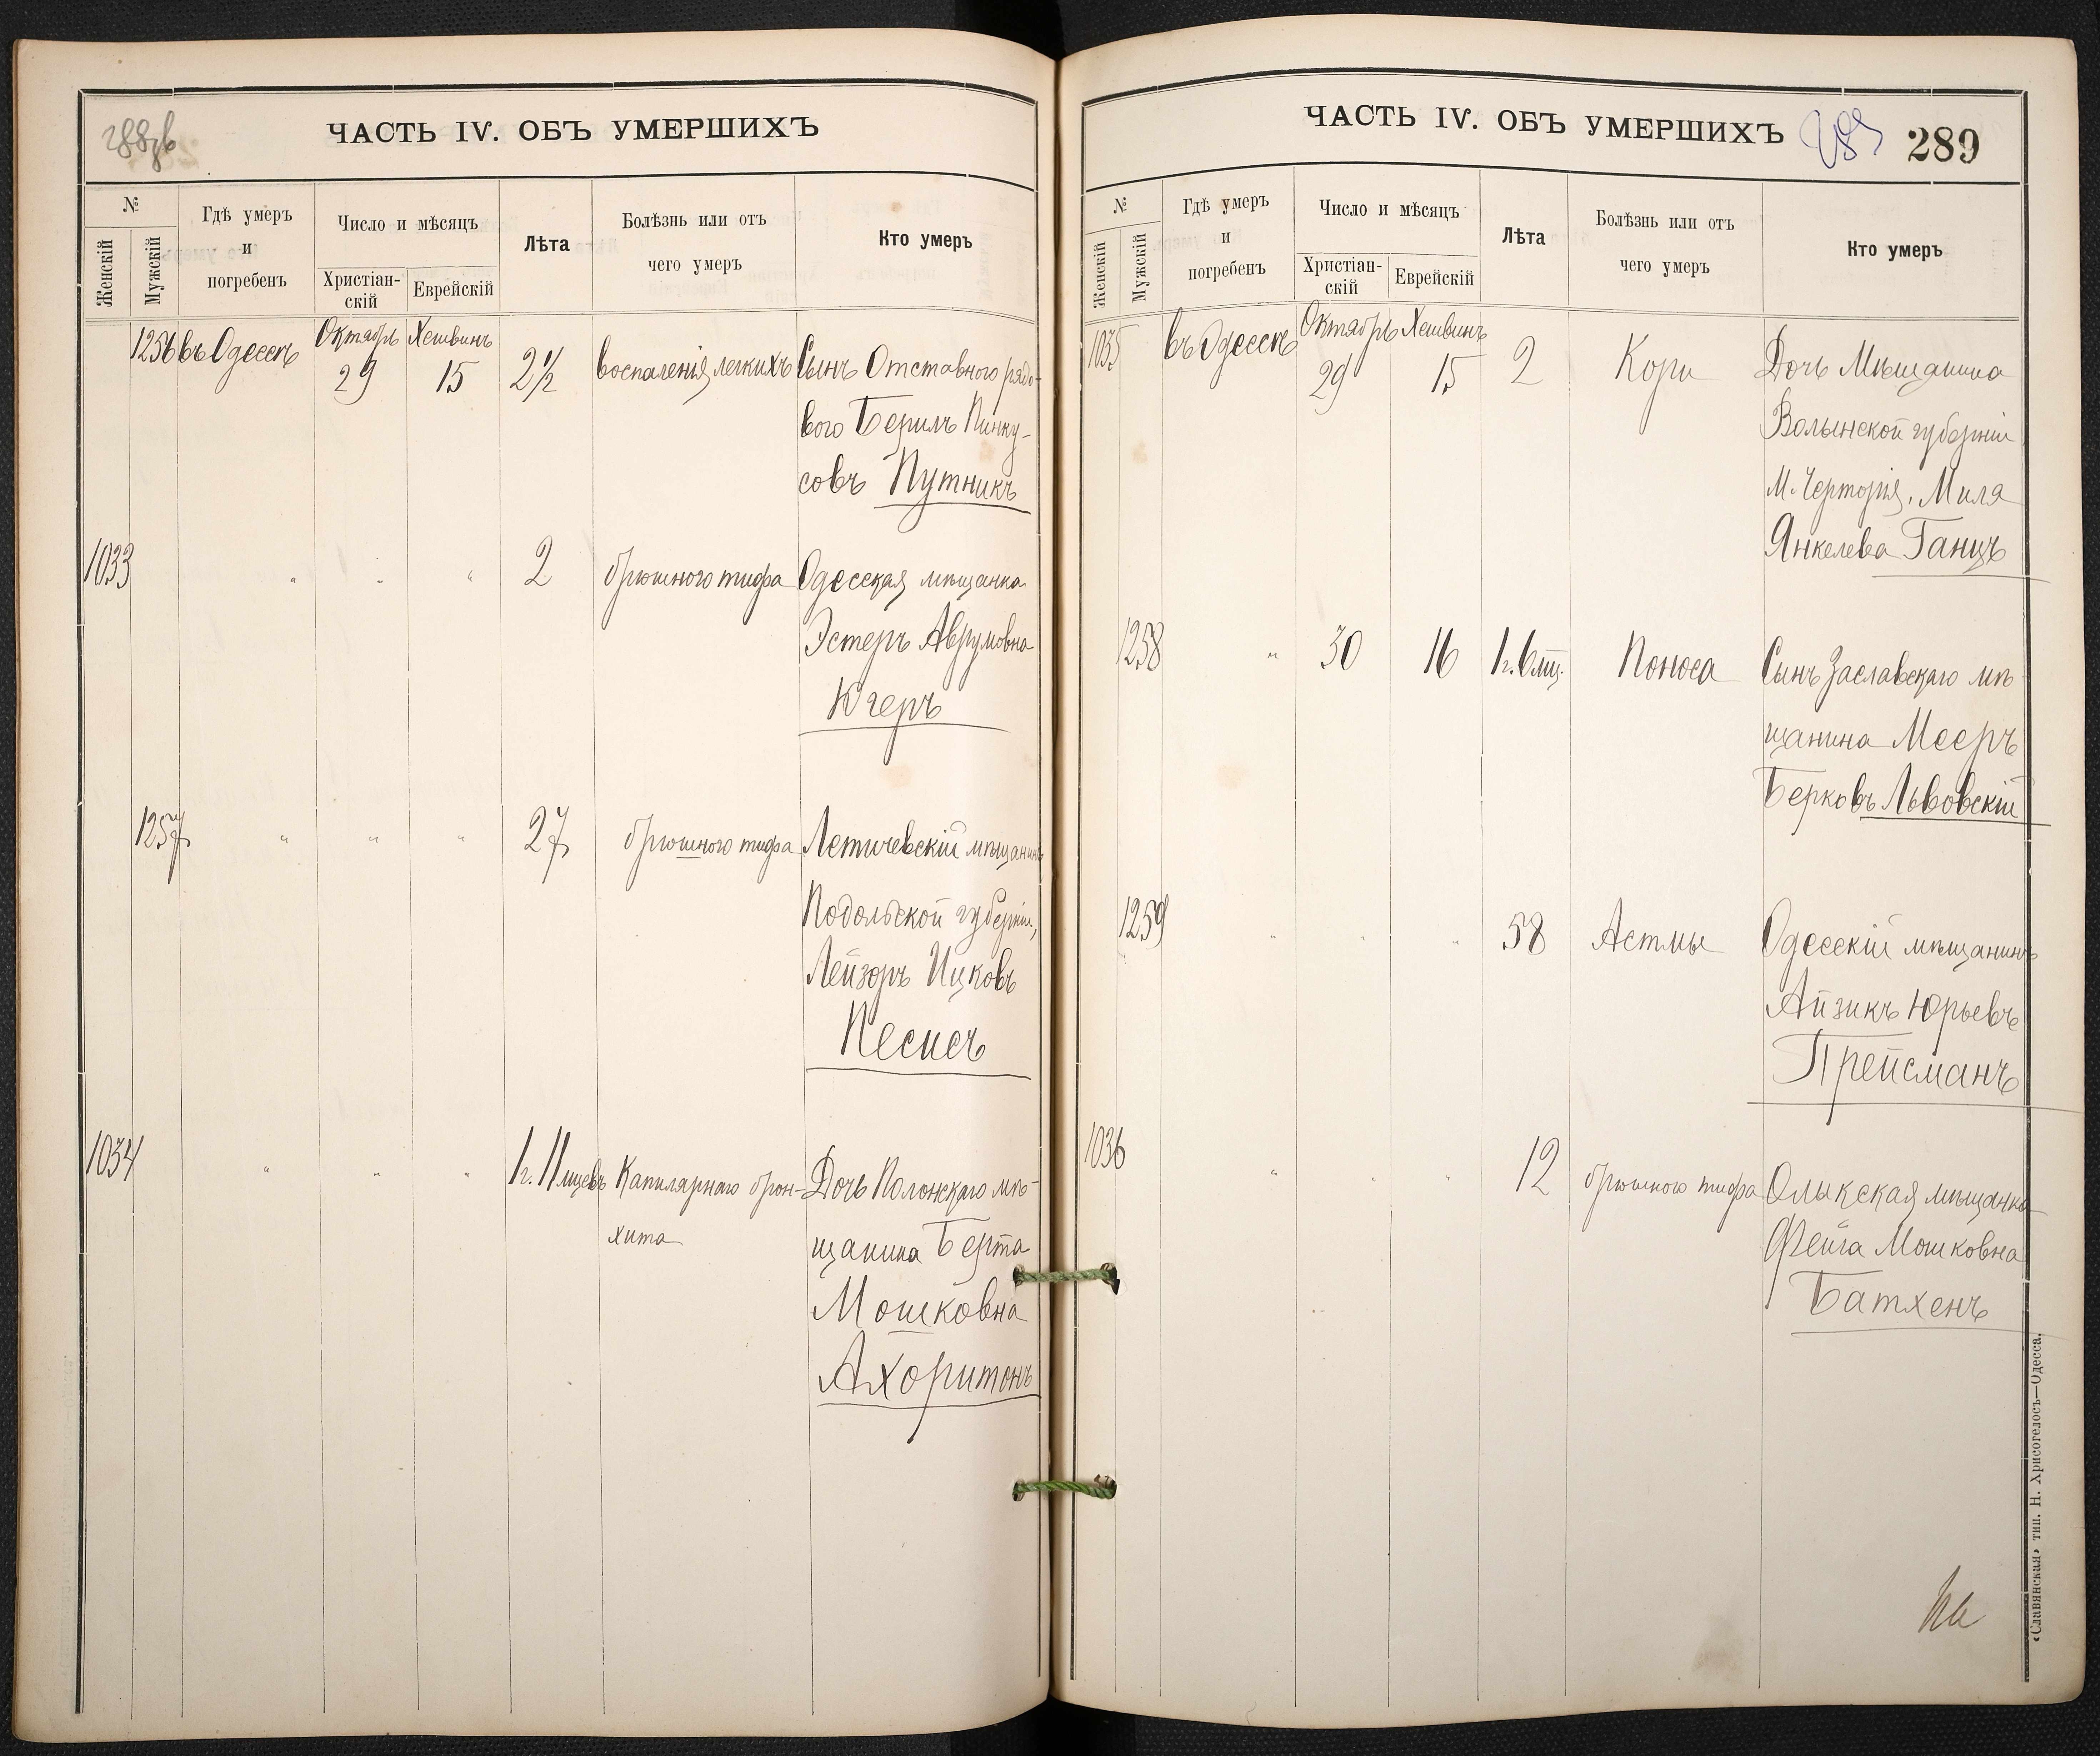 ЧАСТЬ IV. ОБЪ УМЕРШИХЪ
№
Женскій
Мужскій
Гдѣ умеръ
и
погребенъ
Число и мѣсяцъ
Христіан-
скій
Еврейскій
Лѣта
Болѣзнь или отъ
чего умеръ
Кто умеръ
1256 въ Одессѣ Октябрь 29 Хешвинъ 15 2½ воспаленія легкихъ Сынъ Отставного рядо-
вого Берилъ Пинку-
совъ Путникъ
1033 " " " 2 брюшного тифа Одесская мѣщанка
Эстеръ Аврумовна
Югеръ
1257 " " " 27 брюшного тифа Летичевскій мѣщанинъ
Подольской губерніи,
Лейзоръ Ицковъ
Песисъ
1034 " " " 1 г. 11 мцевъ Капилярнаго брон- Дочь Полонскаго мѣ-
хита щанина Берта
Мошковна
Ахоритонъ
ЧАСТЬ IV. ОБЪ УМЕРШИХЪ
289
289
№
Женскій
Мужскій
Гдѣ умеръ
и
погребенъ
Число и мѣсяцъ
Христіан-
скій
Еврейскій
Лѣта
Болѣзнь или отъ
чего умеръ
Кто умеръ
1035 въ Одессѣ Октябрь 29 Хешвинъ 15 2 Кори Дочь Мѣщанина
Волынской губерніи
М. Чертория, Миля
Янкелева Ганцъ
1258 " 30 16 1 г. 6 мц. Поноса Сынъ Заславскаго мѣ
щанина Мееръ
Берковъ Львовскій
1259 " " " 58 Астмы Одесскій мѣщанинъ
Айзикъ Юрьевъ
Прейсманъ
1036 " " " 12 брюшного тифа Олыкская мѣщанка
Фейга Мошковна
Батхенъ
«Славянская» тип. Н. Хрисогелосъ—Одесса.